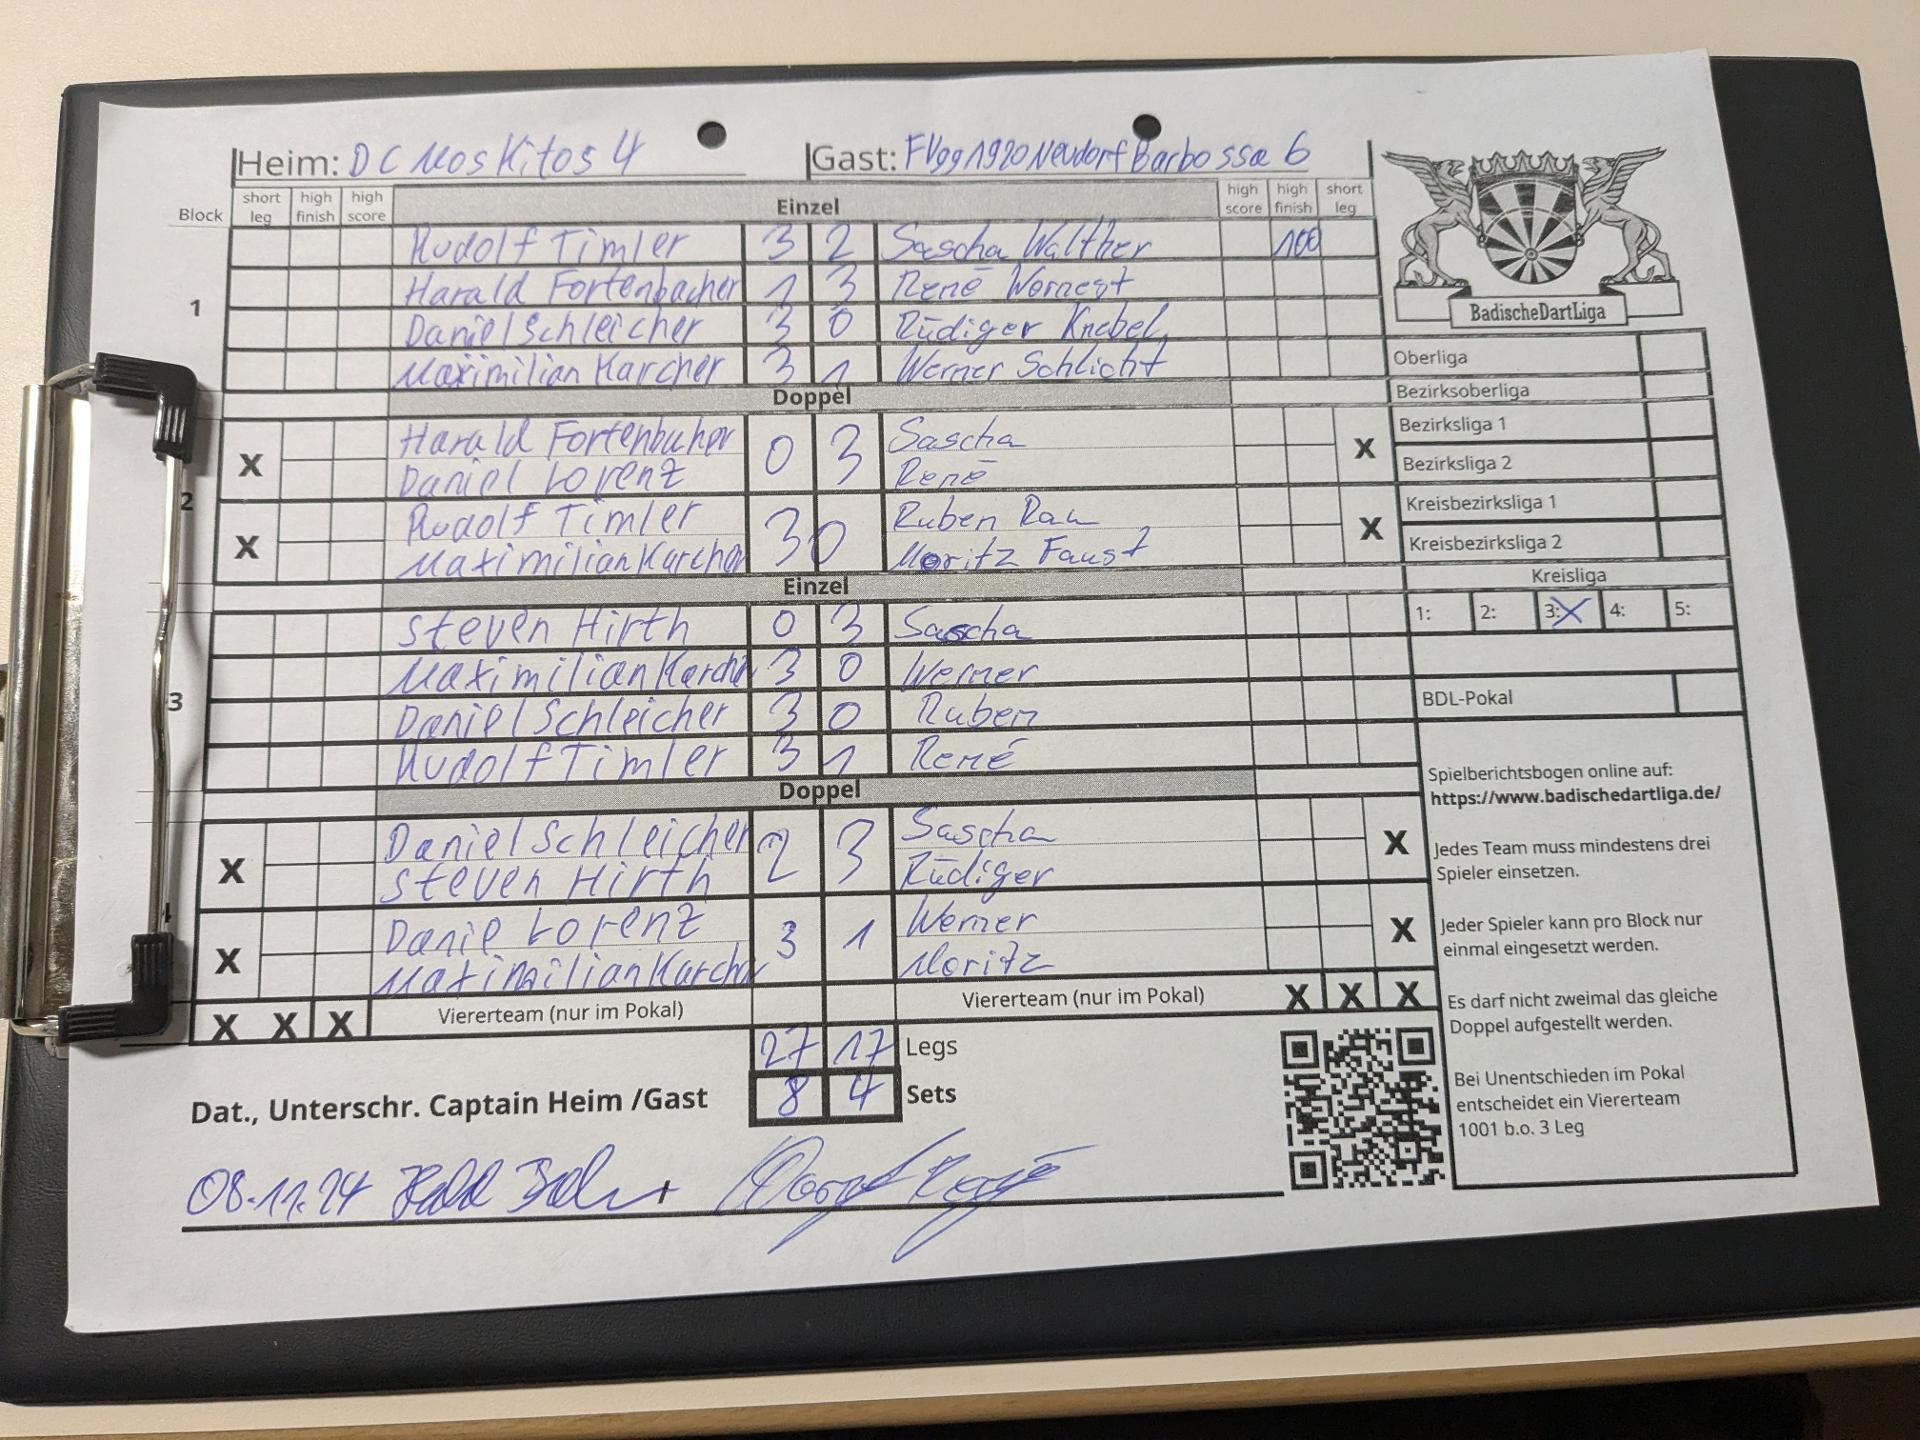 Heim: DC Moskitos 4 Gast: FVgg1920NeudorfBarbossa 6
Block short leg high finish high score Einzel high score high finish short leg
Rudolf Timler 3 2 Sascha Walther 100
Harald Fortenbacher 1 3 René Wernest
1
Daniel Schleicher 3 0 Rüdiger Knebel
Maximilian Karcher 3 1 Werner Schlicht
BadischeDartLiga
Oberliga
Doppel
Bezirksoberliga
X Harald Fortenbacher 0 3 Sascha X
Daniel Lorenz René
Bezirksliga 1
Bezirksliga 2
2
X Rudolf Timler 3 0 Ruben Rau X
Maximilian Karcher Moritz Faust
Kreisbezirksliga 1
Kreisbezirksliga 2
Einzel
Kreisliga
1: 2: 3:X 4: 5:
Steven Hirth 0 3 Sascha
Maximilian Karcher 3 0 Werner
3
Daniel Schleicher 3 0 Ruben
Rudolf Timler 3 1 René
BDL-Pokal
Doppel
X Daniel Schleicher 2 3 Sascha X
Steven Hirth Rüdiger
4
X Daniel Lorenz 3 1 Werner X
Maximilian Karcher Moritz
X X X Viererteam (nur im Pokal) Viererteam (nur im Pokal) X X X
27 17 Legs
Dat., Unterschr. Captain Heim /Gast 8 4 Sets
08.11.24
Spielberichtsbogen online auf:
https://www.badischedartliga.de/
Jedes Team muss mindestens drei
Spieler einsetzen.
Jeder Spieler kann pro Block nur
einmal eingesetzt werden.
Es darf nicht zweimal das gleiche
Doppel aufgestellt werden.
Bei Unentschieden im Pokal
entscheidet ein Viererteam
1001 b.o. 3 Leg